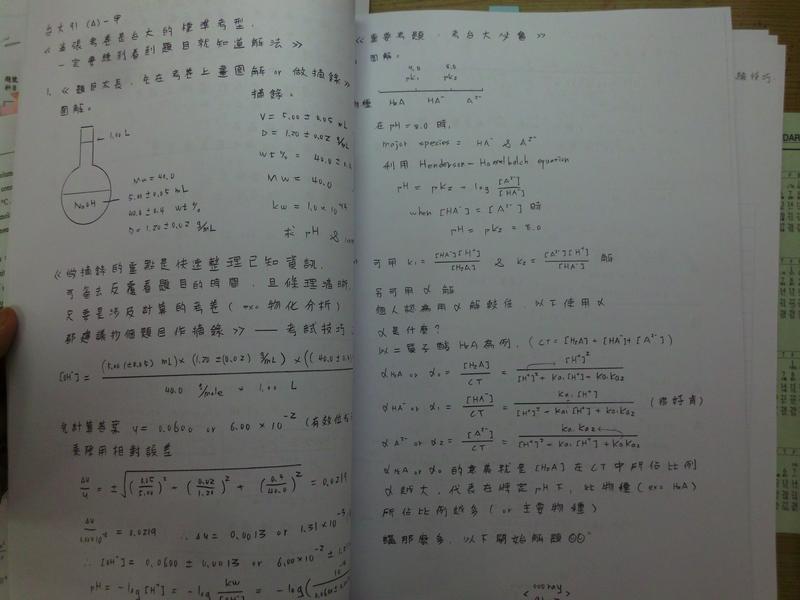 台大 31 (A) - 甲
《 這張考卷是台大的標準考型,
一定要練到看到題目就知道解法 》
1. 《 題目太長, 先在考卷上畫圖解 or 做摘錄
圖解。
1.00 L
NaOH
Mw = 40.0
5.00 ± 0.05 mL
40.0 ± 0.4 wt %
D = 1.20 ± 0.02 g/mL
摘錄。
V = 5.00 ± 0.05 mL
D = 1.20 ± 0.02 g/mL
wt % = 40.0 ± 0.
Mw = 40.0
kw = 1.0 × 10
求 pH &
《 做摘錄的重點是快速整理已知資訊,
可省去反覆看題目的時間, 且條理清晰,
只要是涉及計算的考卷 ( ex: 物化分析 )
都建議抄個題目作摘錄 》 —— 考試技巧
[OH⁻] = (5.00 (±0.05) mL) × (1.20 ±(0.02) g/mL) × ((40.0 ±0.
40.0 g/mole × 1.00 L
先計算答案 y = 0.0600 or 6.00 × 10⁻² (有效位
乘除用相對誤差
Δy/y = ±√((0.05/5.00)² + (0.02/1.20)² + (0.4/40.0)²) = 0.0219
= 0.0219 ∴ Δy = 0.0013 or 1.31 × 10⁻³
∴ [OH⁻] = 0.0600 ± 0.0013 or 6.00 × 10⁻² ±
pH = -log [H⁺] = -log kw/[OH⁻] = -log(
《 重要考題, 考台大必會 》
圖解。
4.0 8.0
pk₁ pk₂
物種 H₂A HA⁻ A²⁻
在 pH = 8.0 時,
major species = HA⁻ & A²⁻
利用 Henderson - Hasselbalch equation
pH = pk₂ + log [A²⁻]/[HA⁻]
when [HA⁻] = [A²⁻] 時
pH = pk₂ = 8.0
可用 k₁ = [HA⁻][H⁺]/[H₂A] & k₂ = [A²⁻][H⁺]/[HA⁻] 解
另可用 α 解
個人認為用 α 解較佳, 以下使用 α
α 是什麼?
以二質子酸 H₂A 為例, ( CT = [H₂A] + [HA⁻] + [A²⁻] )
α H₂A or α₀ = [H₂A]/CT = [H⁺]²/([H⁺]² + Ka₁[H⁺] + Ka₁Ka₂)
α HA⁻ or α₁ = [HA⁻]/CT = Ka₁[H⁺]/([H⁺]² + Ka₁[H⁺] + Ka₁Ka₂) (很好背)
α A²⁻ or α₂ = [A²⁻]/CT = Ka₁Ka₂/([H⁺]² + Ka₁[H⁺] + Ka₁Ka₂)
α H₂A or α₀ 的意義就是 [H₂A] 在 CT 中所佔比例
α 越大, 代表在特定 pH 下, 此物種 (ex: H₂A)
所佔比例越多 ( or 主要物種 )
講那麼多, 以下開始解題
技巧